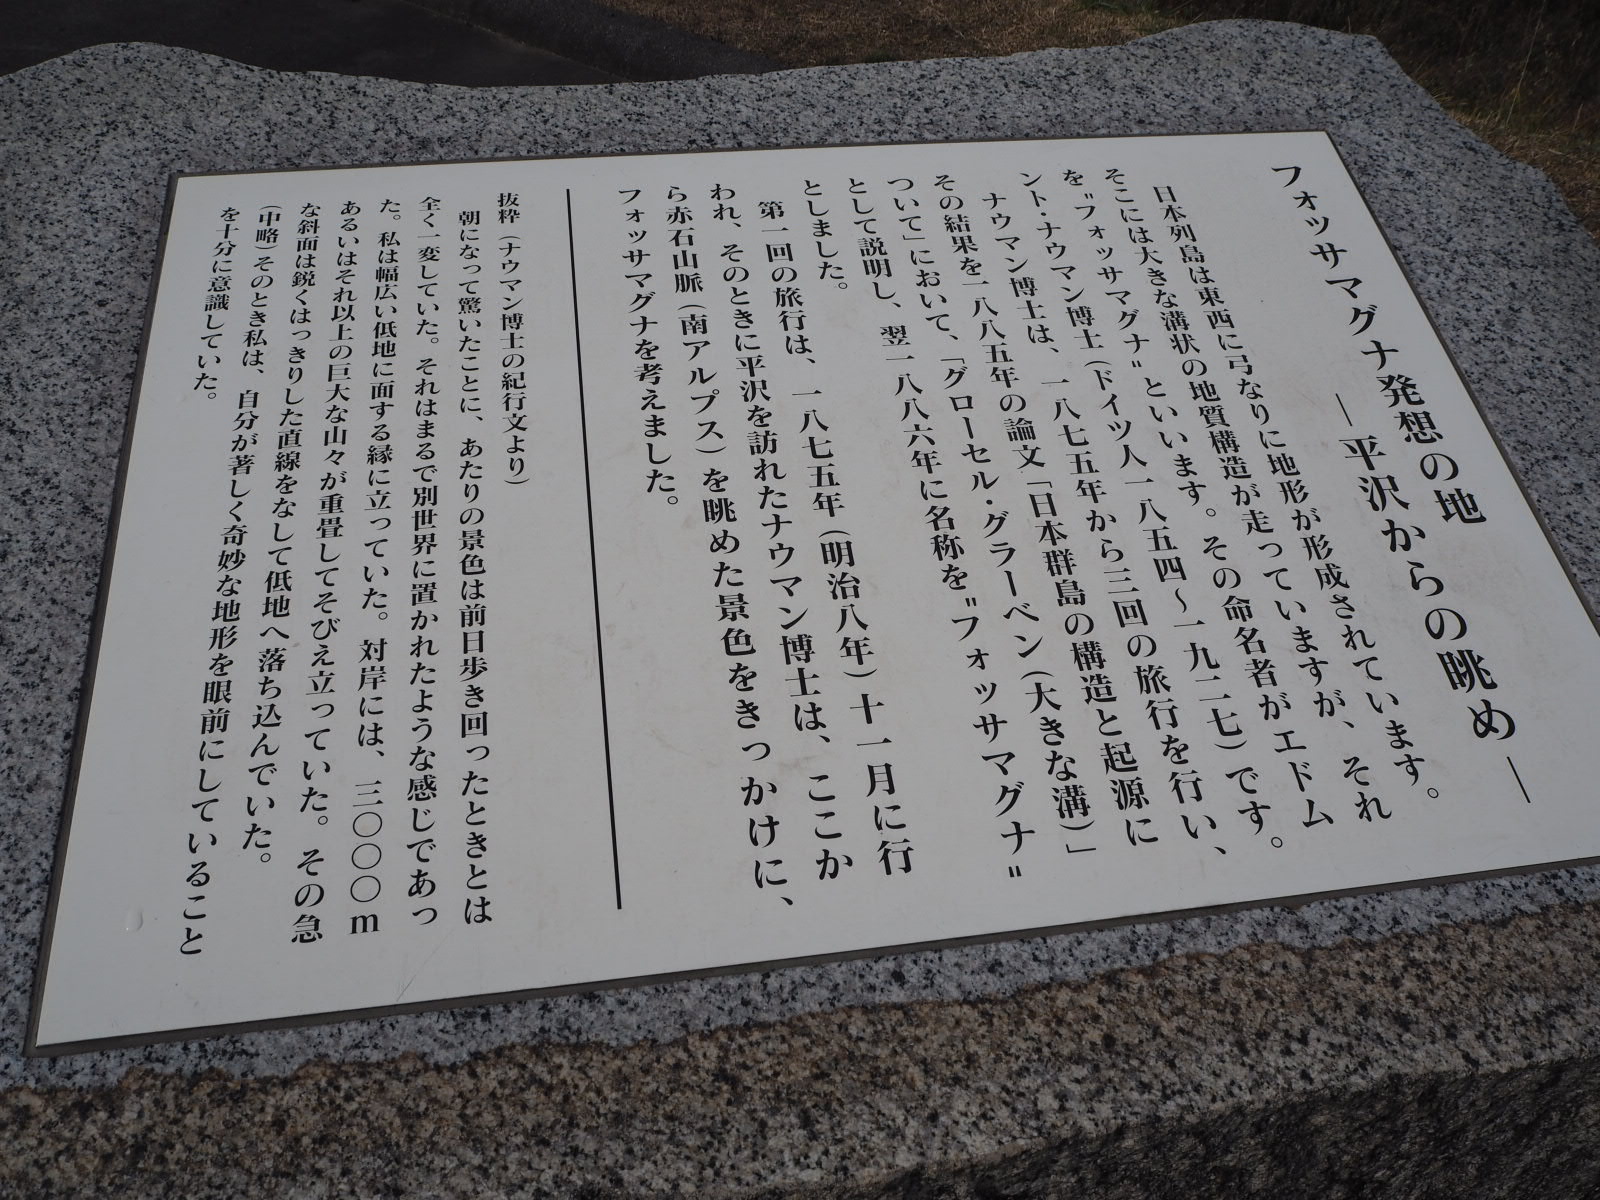 フォッサマグナ発想の地
―平沢からの眺め―
日本列島は東西に弓なりに地形が形成されています。
そこには大きな溝状の地質構造が走っていますが、それ
を〝フォッサマグナ〟といいます。その命名者がエドム
ント・ナウマン博士(ドイツ人一八五四～一九二七)です。
ナウマン博士は、一八七五年から三回の旅行を行い、
その結果を一八八五年の論文「日本群島の構造と起源に
ついて」において、「グローセル・グラーベン(大きな溝)」
として説明し、翌一八八六年に名称を〝フォッサマグナ〟
としました。
第一回の旅行は、一八七五年(明治八年)十一月に行
われ、そのときに平沢を訪れたナウマン博士は、ここか
ら赤石山脈(南アルプス)を眺めた景色をきっかけに、
フォッサマグナを考えました。
抜粋(ナウマン博士の紀行文より)
朝になって驚いたことに、あたりの景色は前日歩き回ったときとは
全く一変していた。それはまるで別世界に置かれたような感じであっ
た。私は幅広い低地に面する縁に立っていた。対岸には、三〇〇〇m
あるいはそれ以上の巨大な山々が重畳してそびえ立っていた。その急
な斜面は鋭くはっきりした直線をなして低地へ落ち込んでいた。
(中略)そのとき私は、自分が著しく奇妙な地形を眼前にしていること
を十分に意識していた。